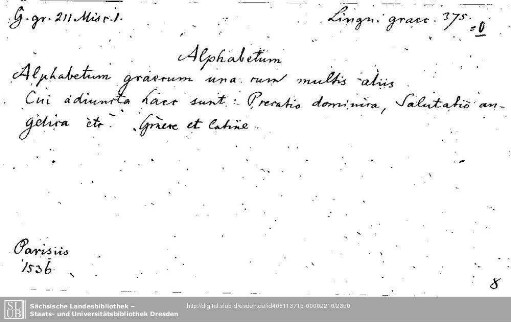 G. gr. 211. Misc. 1.
Lingu. graec. 375.
Alphabetum
Alphabetum graecum una cum multis aliis
Cui adiuncta haec sunt: Precatio dominica, Salutatio an-
gelica etc. Graece et latine.
Parisiis
1536
8
Sächsische Landesbibliothek –
Staats- und Universitätsbibliothek Dresden